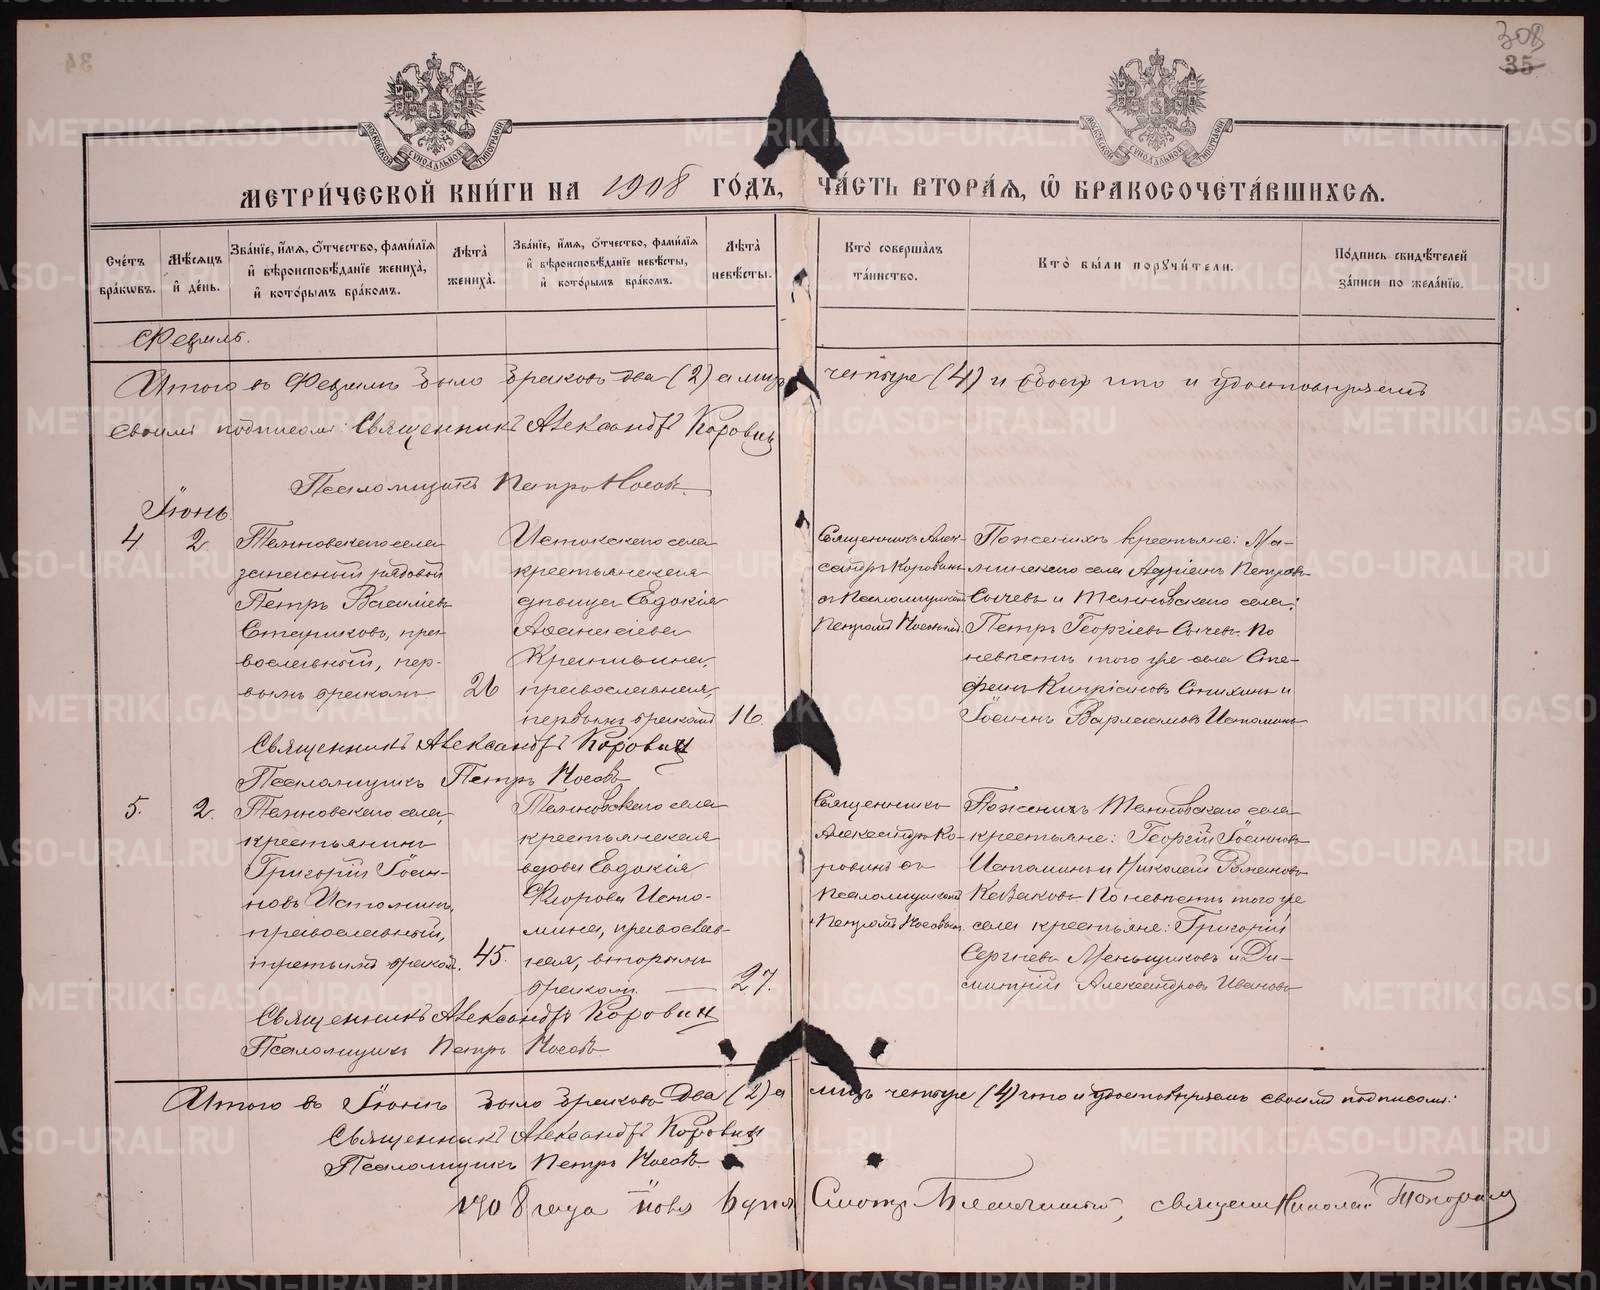 308
35
34
МОСКОВСКОЙ СѴНОДАЛЬНОЙ ТИПОГРАФІИ
МОСКОВСКОЙ СѴНОДАЛЬНОЙ ТИПОГРАФІИ
МЕТРИ́ЧЕСКОЙ КНИ́ГИ НА 1908 ГО́ДЪ, ЧА́СТЬ ВТОРА́Я, Ѽ БРАКОСОЧЕТА́ВШИХСЯ.
Сче́тъ бра́ковъ.
Мѣ́сяцъ и҆ де́нь.
Зва́нїе, и҆́мя, ѻ҆́тчество, фами́лїя и҆ вѣроисповѣ́данїе жениха̀, и҆ кото́рымъ бра́комъ.
Лѣ́та̀ жениха̀.
Зва́нїе, и҆́мя, ѻ҆́тчество, фами́лїя и҆ вѣроисповѣ́данїе невѣ́сты, и҆ кото́рымъ бра́комъ.
Лѣ́та̀ невѣ́сты.
Кто̀ соверша́лъ та́инство.
Кто̀ бы́ли порꙋчи́тели.
По́дпись свидѣ́телей за́писи по жела́нїю.
Февраль.
Итого въ Февралѣ было браковъ два (2) а лицъ четыре (4) и удостовѣряемъ
своимъ подписомъ: Священникъ Александръ Коровин
Псаломщикъ Петръ Носовъ
Іюнь
4
2.
села
запасный рядовой
Петръ Васильевъ
Стариковъ, пра-
вославный, пер-
вымъ бракомъ
26
Истокскаго села
крестьянская
дѣвица Евдокія
Аѳанасіева
православная,
первымъ бракомъ
16.
Священникъ Алек-
сандръ Коровинъ
съ Псаломщикомъ
Петромъ Носовымъ
По женихѣ крестьяне: Ма-
минскаго села Адріанъ Петровъ
Сычевъ и села:
Петръ Георгіевъ Сычевъ. По
невѣстѣ того же села Сте-
фанъ Кипріановъ и
Іоаннъ Варлаамовъ Истоминъ
Священникъ Александръ Коровин
Псаломщикъ Петръ Носовъ
5.
2.
села,
крестьянинъ
Григорій Іоан-
новъ Истоминъ,
православный,
третьимъ бракомъ.
45.
села
крестьянская
вдова Евдокія
Флорова Исто-
мина, православ-
ная, вторымъ
бракомъ.
27.
Священникъ
Александръ Ко-
ровинъ съ
Псаломщикомъ
Петромъ Носовымъ
По женихѣ села
крестьяне: Георгій Іоанновъ
Истоминъ и Николай Романовъ
Казаковъ По невѣстѣ того же
села крестьяне: Григорій
Сергѣевъ Меньщиковъ и Ди-
митрій Александровъ Ивановъ
Священникъ Александръ Коровин
Псаломщикъ Петръ Носовъ
Итого въ Іюнѣ было браковъ Два (2) а лицъ четыре (4) что и удостовѣряемъ своимъ подписомъ:
Священникъ Александръ Коровин
Псаломщикъ Петръ Носовъ
1908 года 6 дня Смотр. Благочинный, священ. Николай Топорков
METRIKI.GASO-URAL.RU